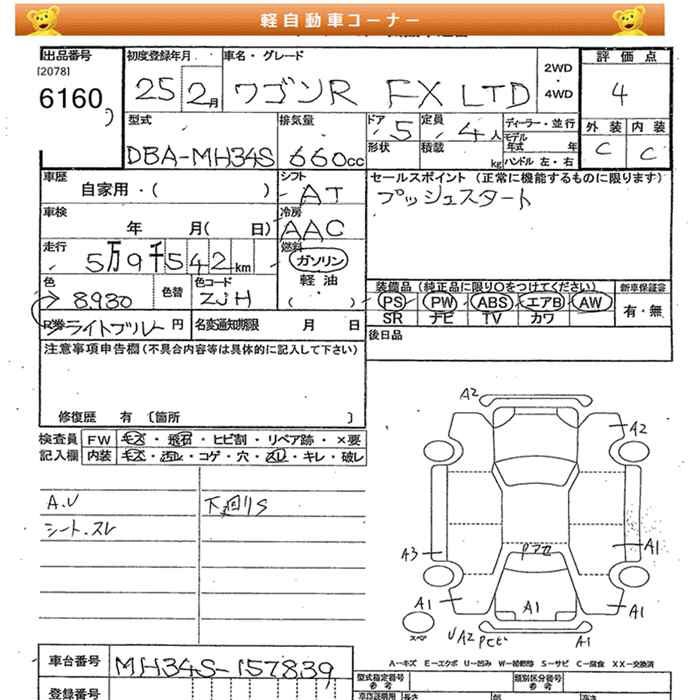 軽自動車コーナー
出品番号
[2078]
6160
初度登録年月
25 2月
車名・グレード
ワゴンR FX LTD
2WD
・
4WD
評価点
4
外装 内装
C C
型式
DBA-MH34S
排気量
660cc
ドア 5
定員 4人
形状
積載 kg
ディーラー・並行
モデル
年式 年
ハンドル 左・右
車歴
自家用・( )
シフト
AT
セールスポイント (正常に機能するものに限ります)
プッシュスタート
車検
年 月( 日)
冷房
AAC
走行
5万9千542km
燃料
ガソリン
軽油
色
色替
色コード
ZJH
8,930
R券 円
ライトブルー
名変通知期限 月 日
装備品 (純正品に限り○をつけてください)
PS PW ABS エアB AW
SR ナビ TV カワ
新車保証書
有・無
後日品
注意事項申告欄(不具合内容等は具体的に記入して下さい)
修復歴 有 〔箇所 〕
検査員
記入欄
FW キズ・飛石・ヒビ割・リペア跡・×要
内装 キズ・汚レ・コゲ・穴・スレ・キレ・破レ
A.U
シート.スレ
下廻りS
A2
A2
A3
A1
A1
A1
A1
スペア
UA2
A1
A-キズ E-エクボ U-凹み W-補修跡 S-サビ C-腐食 XX-交換済
車台番号
MH34S-157839
登録番号
型式指定番号
参考
類別区分番号
参考